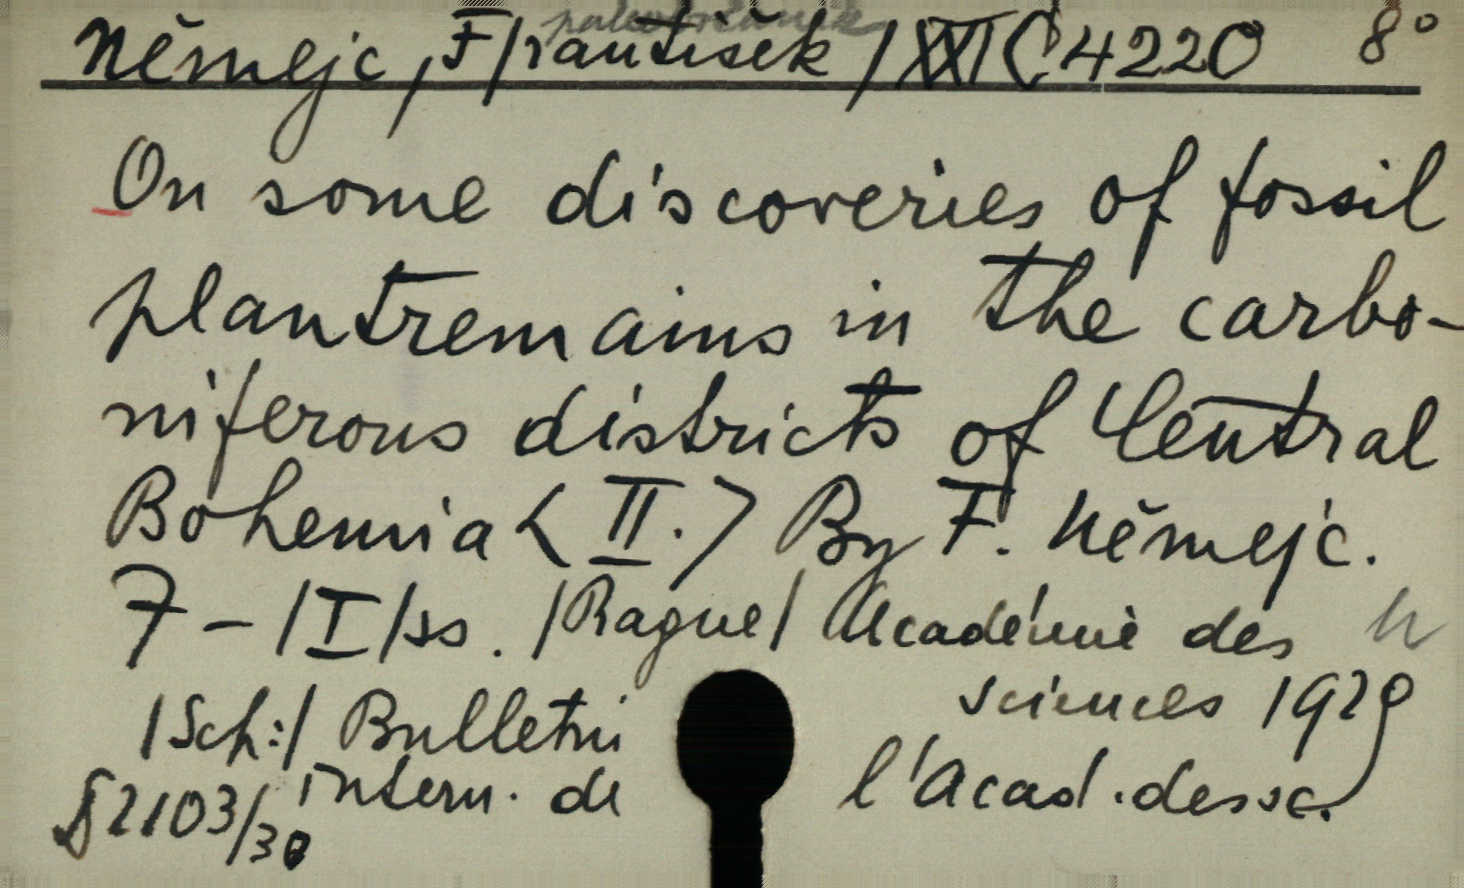 Němejc, F/rantišek/ XXI C 4220 8°
On some discoveries of fossil
plantremains in the carbo-
niferous districts of Central
Bohemia <II.> By F. Němejc.
7 - /I/ ss. /Prague/ Académie des
sciences 1929
/Sch:/ Bulletin
intern. de l'Acad. des sc.
2103/30